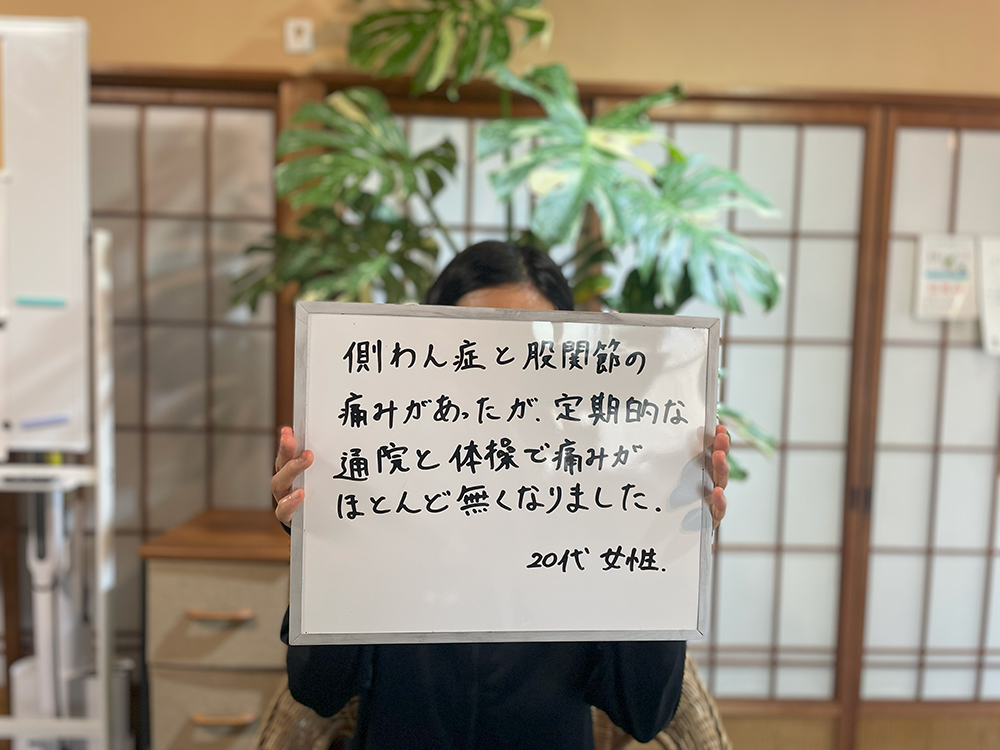 側わん症と股関節の
痛みがあったが、定期的な
通院と体操で痛みが
ほとんど無くなりました。
20代 女性.